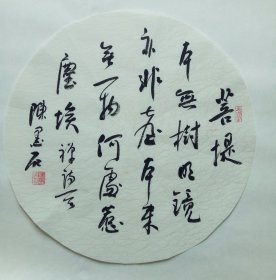 菩提
本無樹明鏡
亦非臺本来
無一物何處惹
塵埃禅詩
陳墨石